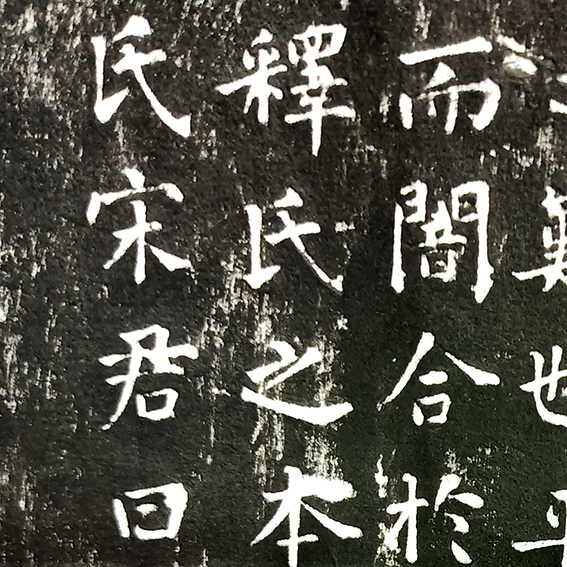 難也平
而闇合於
釋氏之本
氏宋君曰